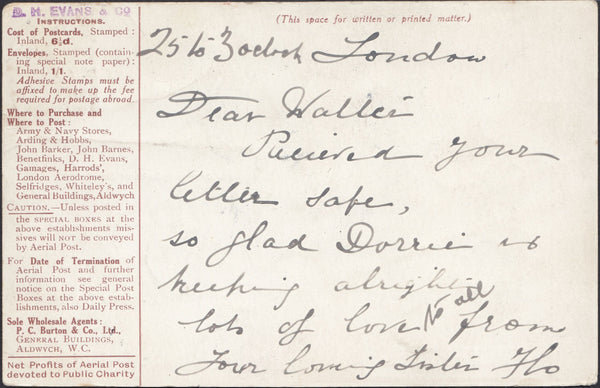 D. H. EVANS & Co
INSTRUCTIONS.
Cost of Postcards, Stamped:
Inland, 6½d.
Envelopes, Stamped (contain-
ing special note paper):
Inland, 1/1.
Adhesive Stamps must be
affixed to make up the fee
required for postage abroad.
Where to Purchase and
Where to Post:
Army & Navy Stores,
Arding & Hobbs,
John Barker, John Barnes,
Benetfinks, D. H. Evans,
Gamages, Harrods',
London Aerodrome,
Selfridges, Whiteley's, and
General Buildings, Aldwych
CAUTION.—Unless posted in
the SPECIAL BOXES at the
above establishments mis-
sives will NOT be conveyed
by Aerial Post.
For Date of Termination of
Aerial Post and further
information see general
notice on the Special Post
Boxes at the above estab-
lishments, also Daily Press.
Sole Wholesale Agents:
P. C. Burton & Co., Ltd.,
GENERAL BUILDINGS,
ALDWYCH, W.C.
Net Profits of Aerial Post
devoted to Public Charity
(This space for written or printed matter.)
25 to 3 oclock London
Dear Walter
Recieved your
letter safe,
so glad Dorrie is
keeping alright
lots of love to all from
Your loving Sister Flo